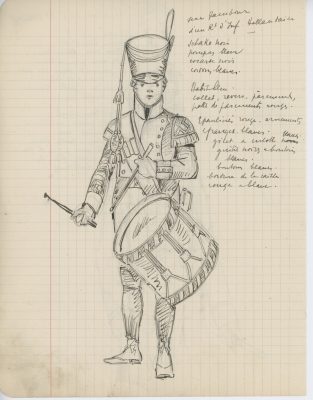 un Tambour
d'un Rt d'Inf Hollandais
schako noir
pompon blanc
cocarde noire
cordons blancs
Habit bleu.
collet, revers, parements,
patte de parements rouge.
Epaulières rouge, ornements
blancs
gilet à culotte
guêtres noires à boutons
blancs.
boutons blancs.
bordure de la caisse
rouge et blanc.